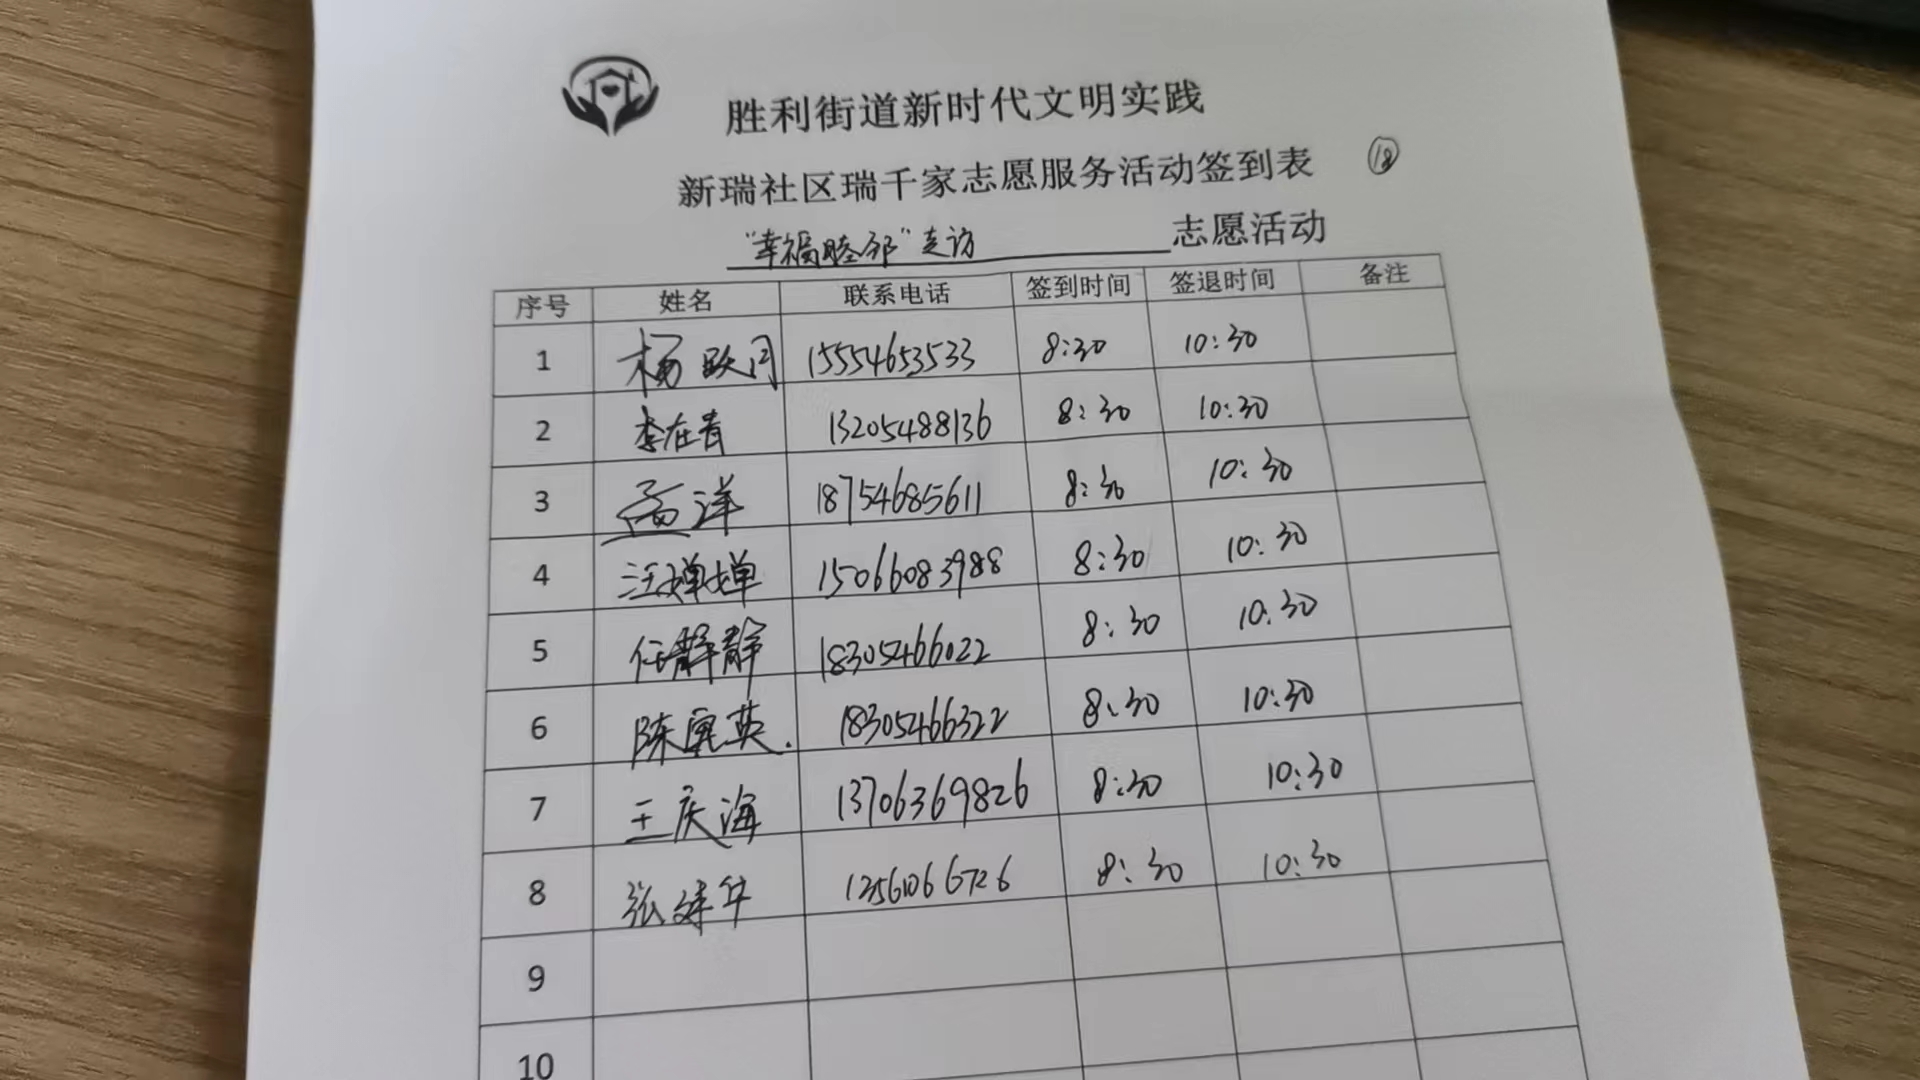 胜利街道新时代文明实践
新瑞社区瑞千家志愿服务活动签到表 ⑱
"幸福睦邻"走访 志愿活动
序号 姓名 联系电话 签到时间 签退时间 备注
1 杨跃月 15554653533 8:30 10:30
2 李在青 13205488136 8:30 10:30
3 孟洋 18754685611 8:30 10:30
4 汪婵婵 15066083988 8:30 10:30
5 任静静 18305466022 8:30 10:30
6 陈寅英 18305466322 8:30 10:30
7 王庆海 13706369826 8:30 10:30
8 张建华 8:30 10:30
9
10